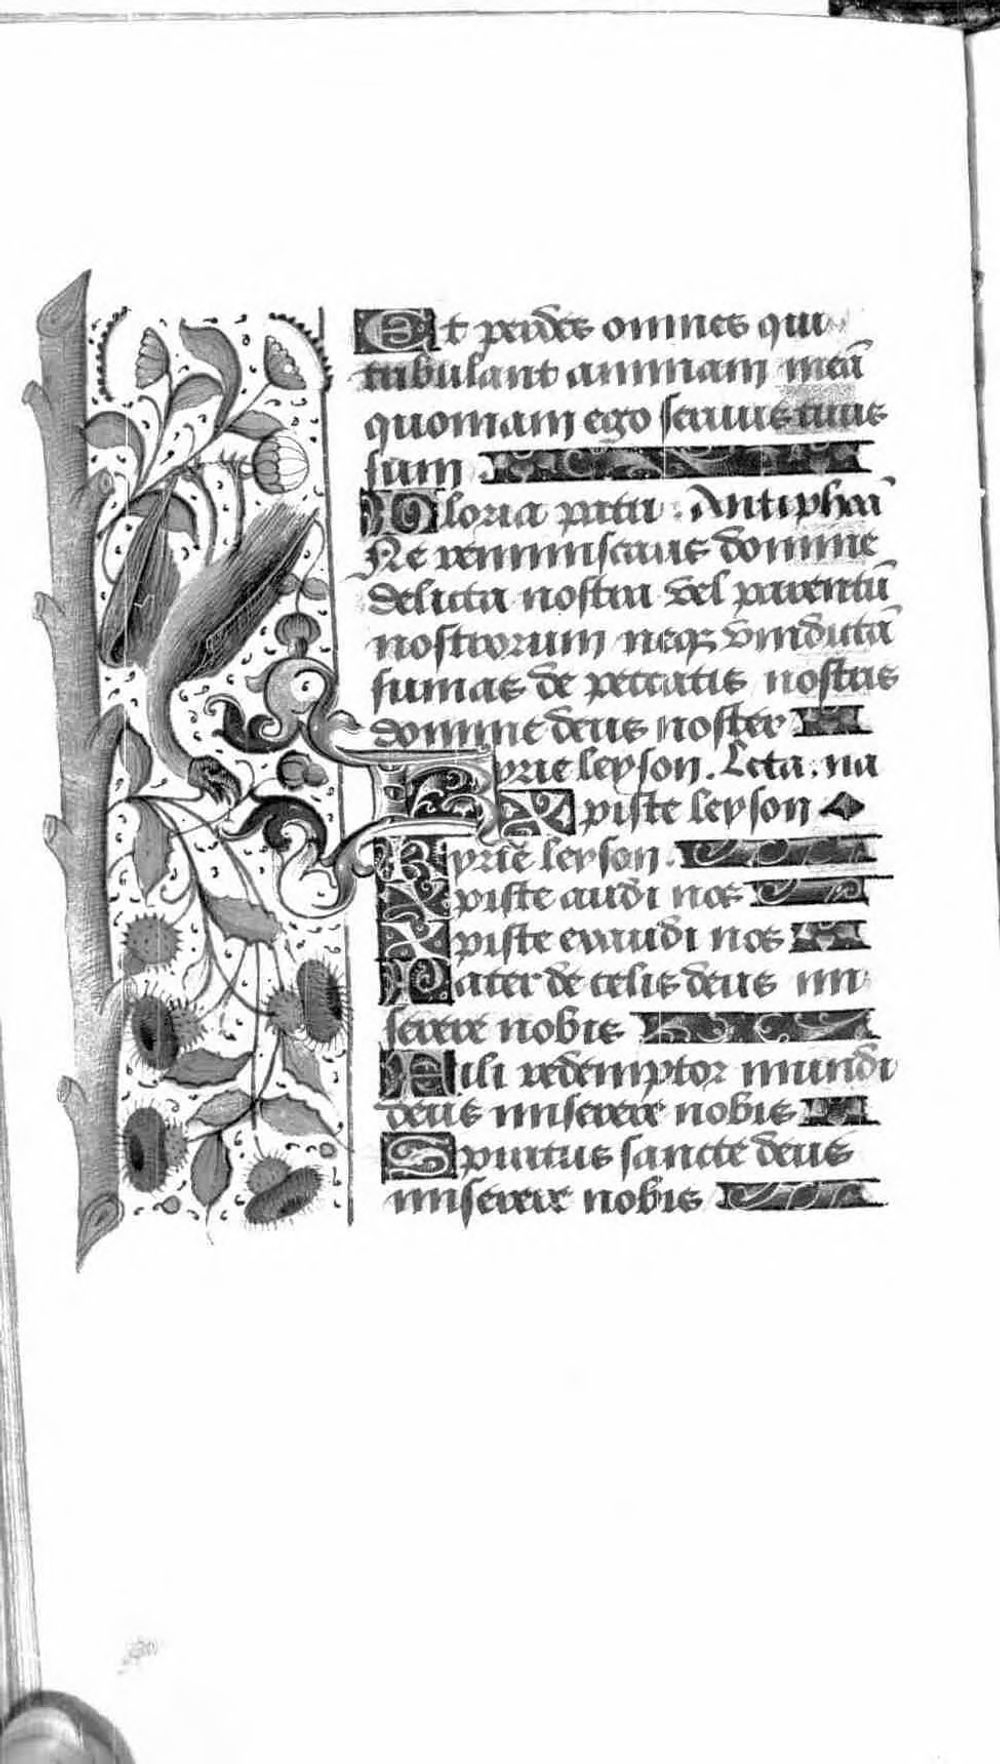 Et perdes omnes qui
tribulant animam meā
quoniam ego seruus tuus
sum
Gloria patri. Antiphoā
Ne reminiscaris domine
delicta nostra vel parentū
nostrorum neqꝫ vindictā
sumas de peccatis nostris
domine deus noster
Kyrie leyson. Leta. na
Xpiste leyson
Kyrie leyson.
Xpiste audi nos
Xpiste exaudi nos
Pater de celis deus mi
serere nobis
Fili redemptor mundi
deus miserere nobis
Spiritus sancte deus
miserere nobis